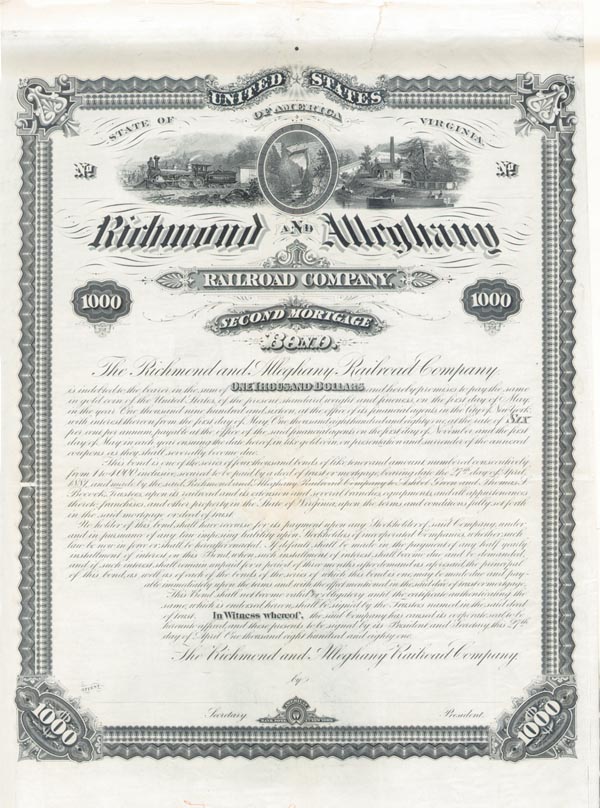 UNITED STATES
OF AMERICA
STATE OF VIRGINIA.
No. No.
Richmond AND Alleghany
RAILROAD COMPANY.
1000 1000
SECOND MORTGAGE
BOND.
The Richmond and Alleghany Railroad Company
is indebted to the bearer in the sum of ONE THOUSAND DOLLARS and hereby promises to pay the same
in gold coin of the United States, of the present standard weight and fineness, on the first day of May,
in the year One thousand nine hundred and sixteen, at the office of its financial agents in the City of New York,
with interest thereon from the first day of May, One thousand eight hundred and eighty one, at the rate of SIX
per cent per annum, payable at the office of the said financial agents on the first day of November and the first
day of May in each year ensuing the date hereof in like gold coin on presentation and surrender of the annexed
coupons as they shall severally become due.
This bond is one of the series of four thousand bonds of like tenor and amount numbered consecutively
from 1 to 4000 inclusive, issued and secured by a deed of trust or mortgage, bearing date the 27th day of April
1881, and made by the said Richmond and Alleghany Railroad Company to Ashbel Green and Thomas S.
Bocock, Trustees, upon its railroad and its extensions and several branches, equipments, and all appurtenances
thereto, franchises, and other property in the State of Virginia, upon the terms and conditions fully set forth
in the said mortgage or deed of trust.
No holder of this bond shall have recourse for its payment upon any Stockholder of said Company, under
and in pursuance of any law imposing liability upon Stockholders of incorporated companies, whether such
law be now in force or shall be hereafter enacted. If default shall be made in the payment of any half yearly
installment of interest on this Bond when such installment of interest shall become due and be demanded,
and if such interest shall remain unpaid for a period of three months after demand as aforesaid the principal
of this bond, as well as of each of the bonds of the series of which this bond is one, may become due and pay-
able immediately upon the terms and with the effect mentioned in the said deed of trust or mortgage.
This Bond shall not become valid or obligatory until the certificate authenticating the
same, which is endorsed hereon, shall be signed by the Trustees named in the said deed
of trust. In Witness whereof, the said Company has caused its corporate seal to be
hereunto affixed, and these presents to be signed by its President and Secretary this 27th
day of April One thousand eight hundred and eighty one.
The Richmond and Alleghany Railroad Company.
by
Secretary President
1000 1000